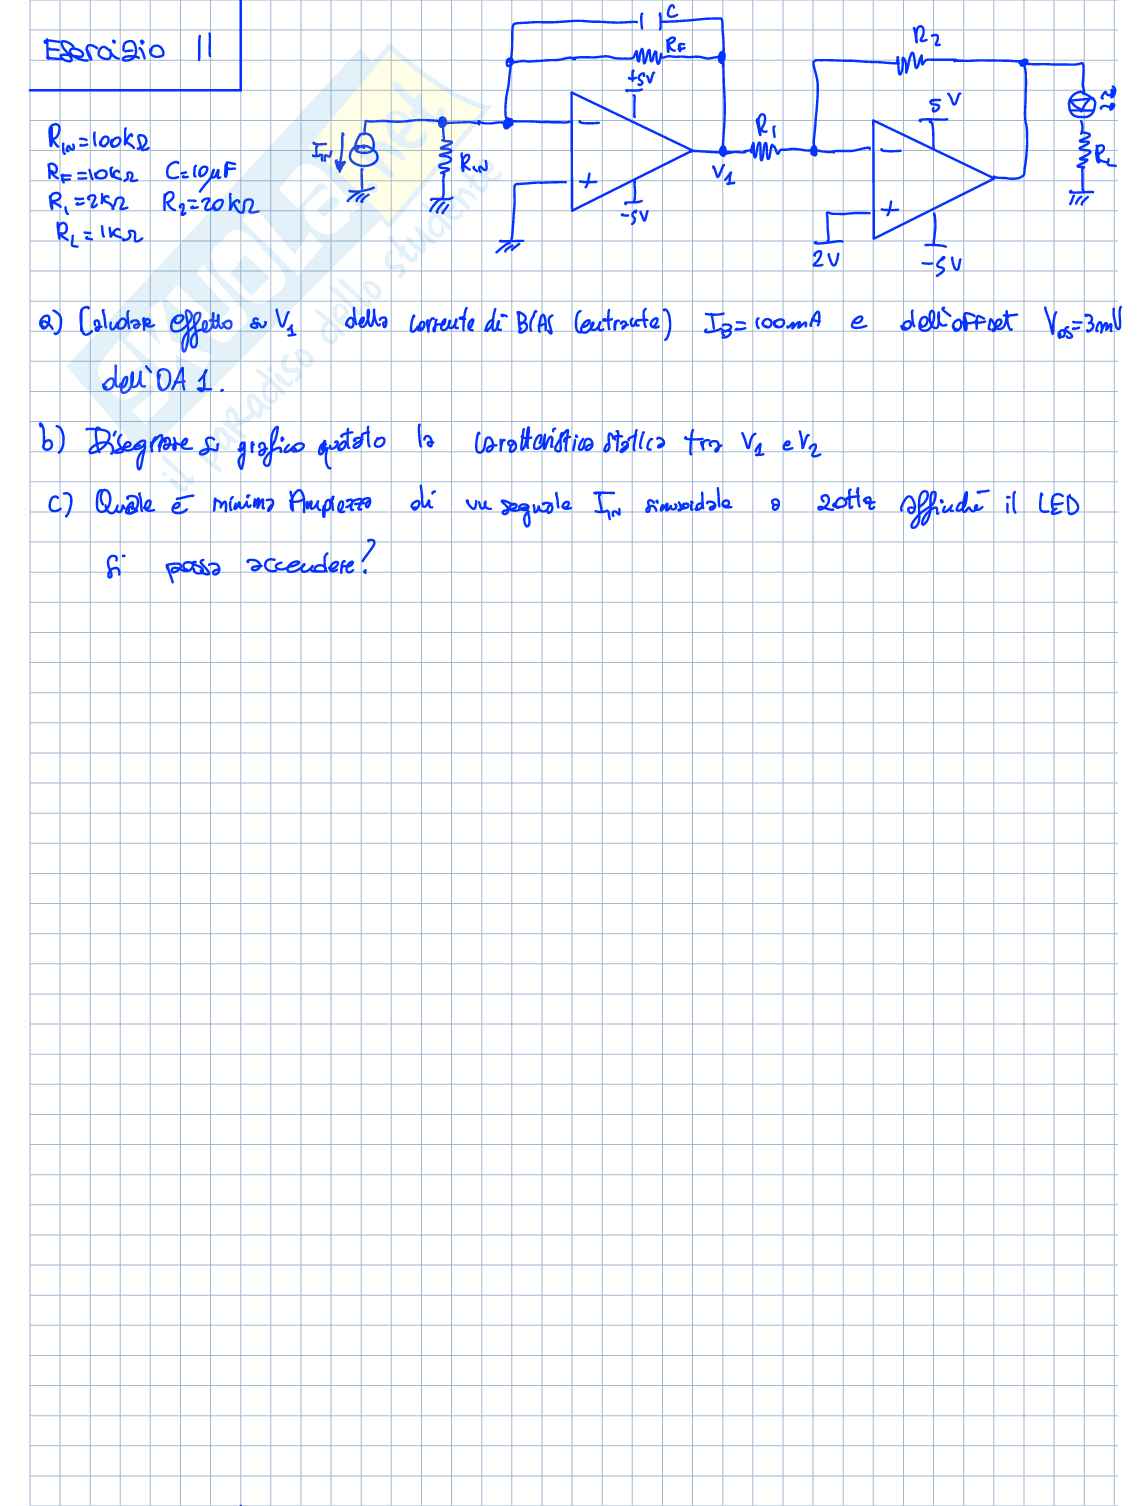 Esercizio 11
R_IN=100kΩ
R_F=10kΩ C=10μF
R_1=2kΩ R_2=20kΩ
R_L=1kΩ
C
R_F
+5V
I_IN
R_IN
-5V
V_1
R_1
R_2
5V
2V
-5V
R_L
a) Calcolare effetto su V_1 della corrente di BIAS (entrante) I_B=100mA e dell'offset V_os=3mV
dell'OA 1.
b) Disegnare su grafico quotato la caratteristica statica tra V_1 e V_2
c) Quale è minima Ampiezza di un segnale I_IN sinusoidale a 20Hz affinché il LED
si possa accendere?
SKUOLA.net
il paradiso dello studente